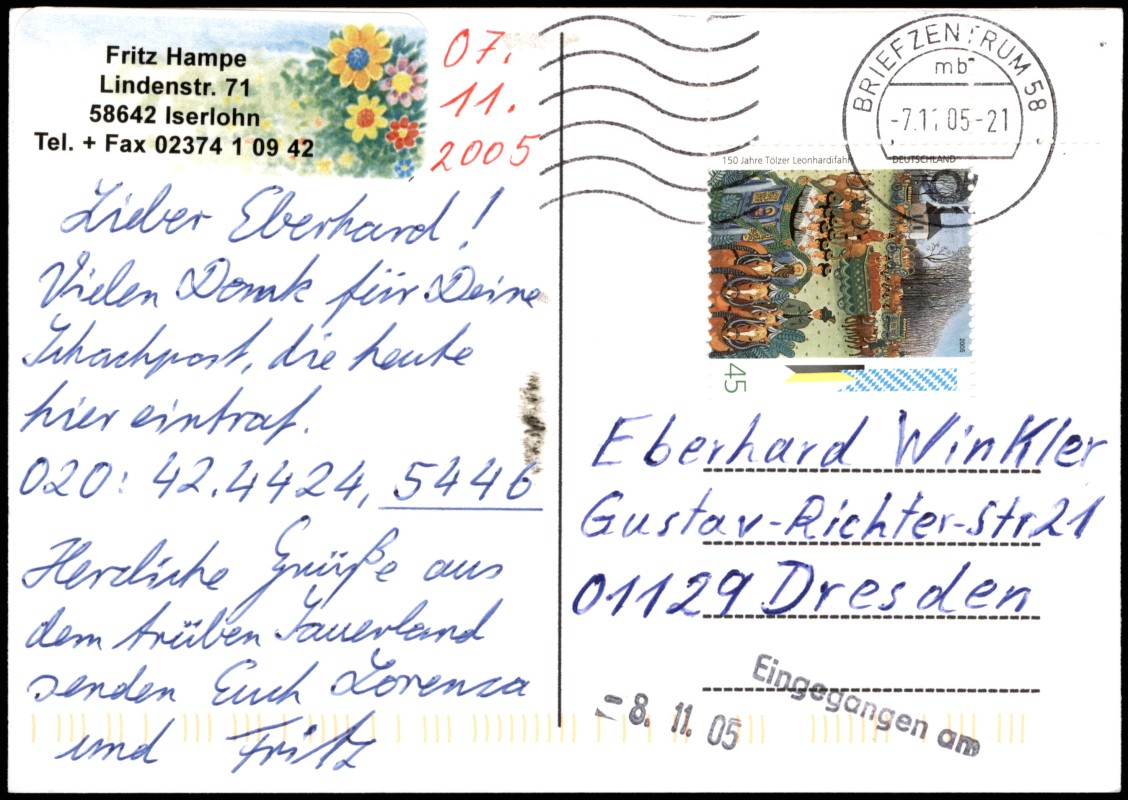 Fritz Hampe
Lindenstr. 71
58642 Iserlohn
Tel. + Fax 02374 1 09 42
07.
11.
2005
Lieber Eberhard!
Vielen Dank für Deine
Schachpost, die heute
hier eintraf.
020: 42.4424, 5446
Herzliche Grüße aus
dem trüben Sauerland
senden Euch Lorenza
und Fritz
BRIEFZENTRUM 58
mb
-7.11.05-21
150 Jahre Tölzer Leonhardifahrt
DEUTSCHLAND
2005
45
Eberhard Winkler
Gustav-Richter-Str 21
01129 Dresden
Eingegangen am
-8. 11. 05